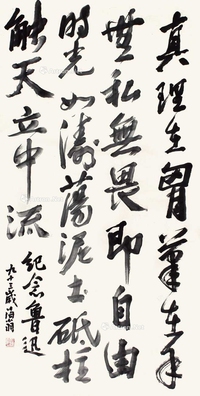 真理在胸笔在手
无私無畏即自由
時光如濤蕩泥土砥柱
触天立中流
纪念鲁迅
九十三歲海翁